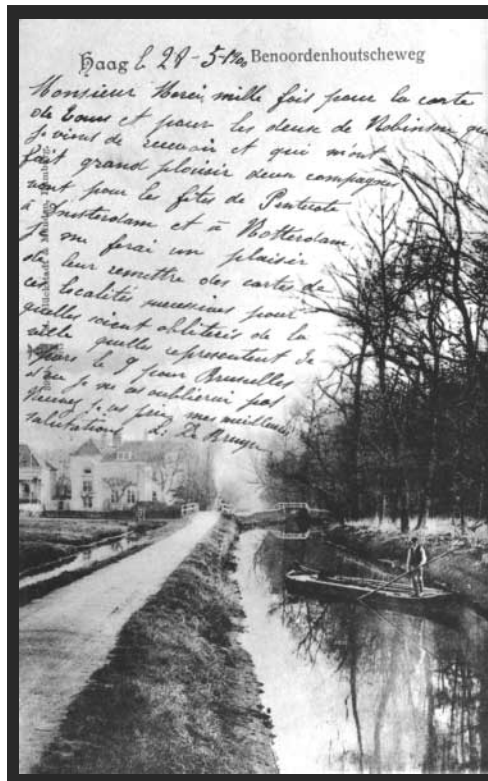 Haag le 28-5-1900 Benoordenhoutscheweg
Monsieur Merci, mille fois pour la carte
de vous et pour les deux de Robinson que
je viens de recevoir et qui m'ont
fait grand plaisir deux compagnes
vont pour les fêtes de Pentecote
à Amsterdam et à Rotterdam
je me ferai un plaisir
de leur remettre des cartes de
ces localités successives pour
quelles soient obliteris de la
ville quelles representent
pars le 9 pour Bruxelles
d'ou je ne vs oublierai pas
je vs prie mes meilleures
salutations L. De Bruyn